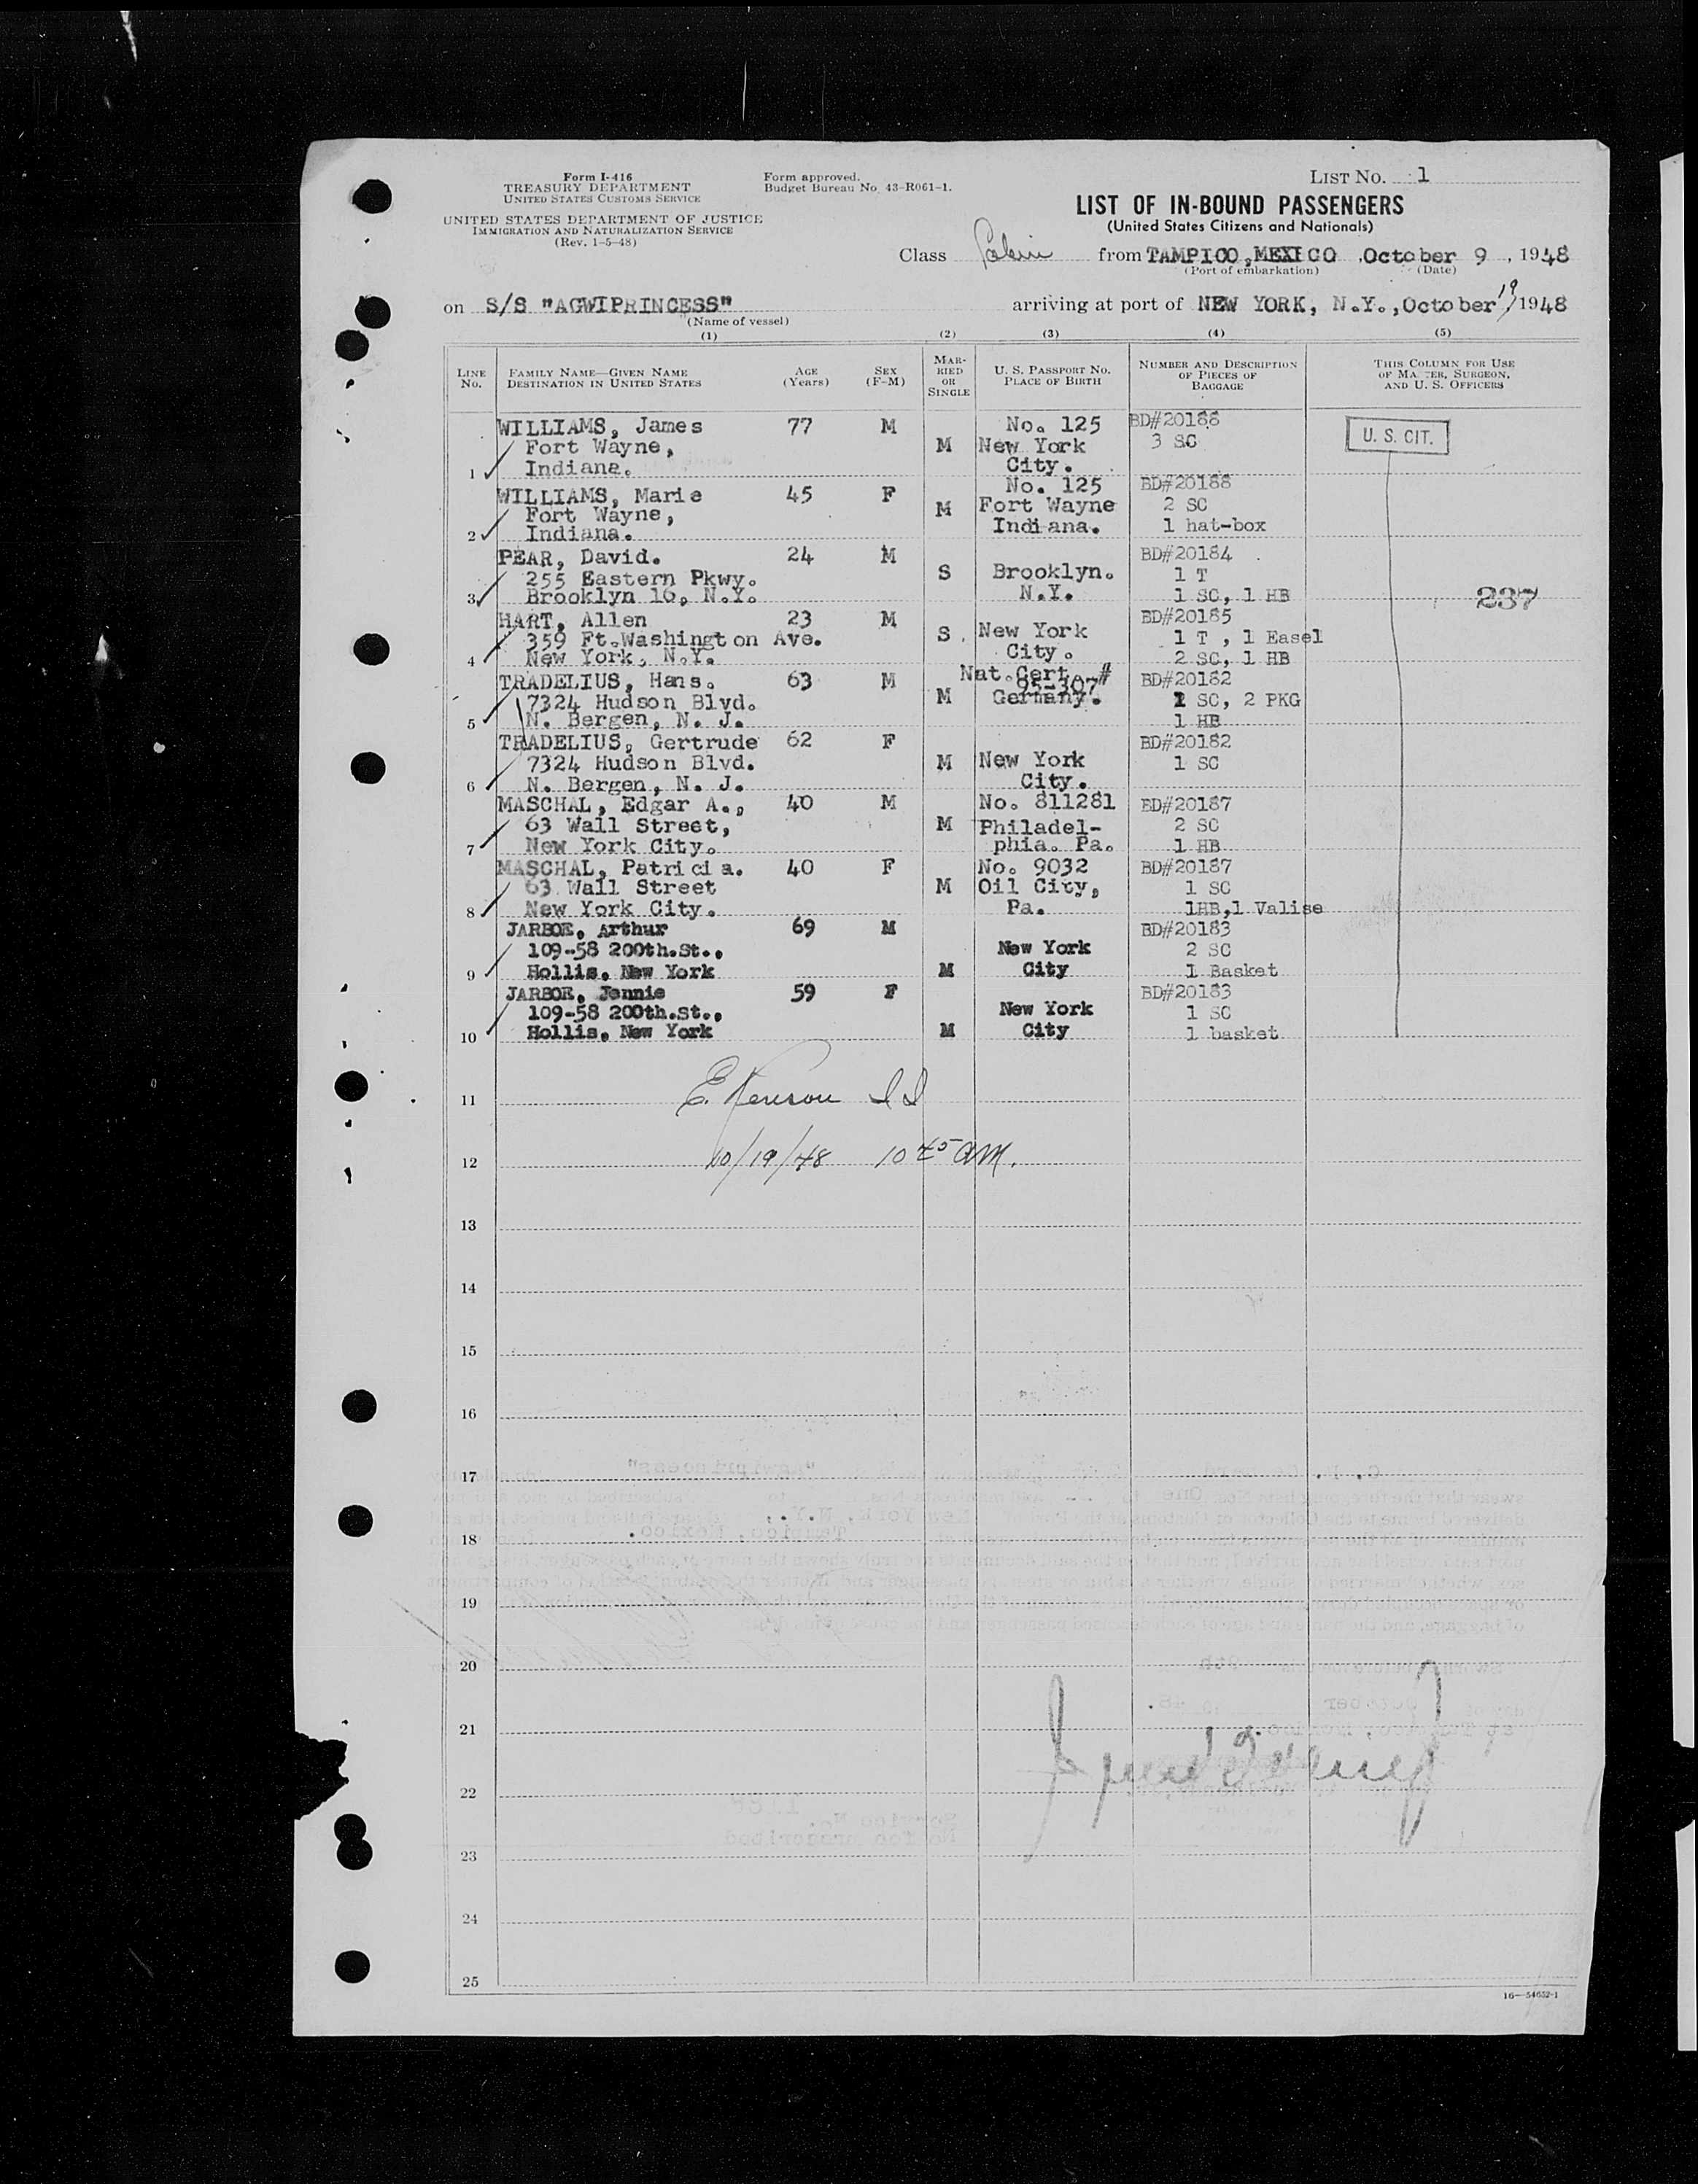 Form I-416
TREASURY DEPARTMENT
UNITED STATES CUSTOMS SERVICE
UNITED STATES DEPARTMENT OF JUSTICE
IMMIGRATION AND NATURALIZATION SERVICE
(Rev. 1-5-48)
Form approved.
Budget Bureau No. 43-R061-1.
LIST NO. 1
LIST OF IN-BOUND PASSENGERS
(United States Citizens and Nationals)
Class Cabin from TAMPICO, MEXICO , October 9 , 1948
(Port of embarkation) (Date)
on S/S "AGWIPRINCESS" arriving at port of NEW YORK, N.Y., October 19, 1948
(Name of vessel)
(1) (2) (3) (4) (5)
LINE No. FAMILY NAME—GIVEN NAME DESTINATION IN UNITED STATES AGE (Years) SEX (F-M) MARRIED OR SINGLE U. S. PASSPORT NO. PLACE OF BIRTH NUMBER AND DESCRIPTION OF PIECES OF BAGGAGE THIS COLUMN FOR USE OF MASTER, SURGEON, AND U. S. OFFICERS
WILLIAMS, James 77 M No. 125 BD#20188
Fort Wayne, M New York 3 SC U. S. CIT.
1 Indiana. City.
WILLIAMS, Marie 45 F No. 125 BD#20188
Fort Wayne, M Fort Wayne 2 SC
2 Indiana. Indiana. 1 hat-box
PEAR, David. 24 M BD#20184
255 Eastern Pkwy. S Brooklyn. 1 T
3 Brooklyn 16, N.Y. N.Y. 1 SC, 1 HB 237
HART, Allen 23 M BD#20185
359 Ft.Washington Ave. S. New York 1 T , 1 Easel
4 New York, N.Y. City. 2 SC, 1 HB
TRADELIUS, Hans. 63 M Nat.Cert.# 95-307 BD#20182
7324 Hudson Blvd. M Germany. 1 SC, 2 PKG
5 N. Bergen, N. J. 1 HB
TRADELIUS, Gertrude 62 F BD#20182
7324 Hudson Blvd. M New York 1 SC
6 N. Bergen, N. J. City.
MASCHAL, Edgar A., 40 M No. 811281 BD#20187
63 Wall Street, M Philadel- 2 SC
7 New York City. phia. Pa. 1 HB
MASCHAL, Patricia. 40 F No. 9032 BD#20187
63 Wall Street M Oil City, 1 SC
8 New York City. Pa. 1HB,1 Valise
JARBOE, Arthur 69 M BD#20183
109-58 200th.St., New York 2 SC
9 Hollis, New York M City 1 Basket
JARBOE, Jennie 59 F BD#20183
109-58 200th.St., New York 1 SC
10 Hollis, New York M City 1 basket
11
12 10/19/48 10 45 AM.
13
14
15
16
17
18
19
20
21
22
23
24
25
16—54652-1